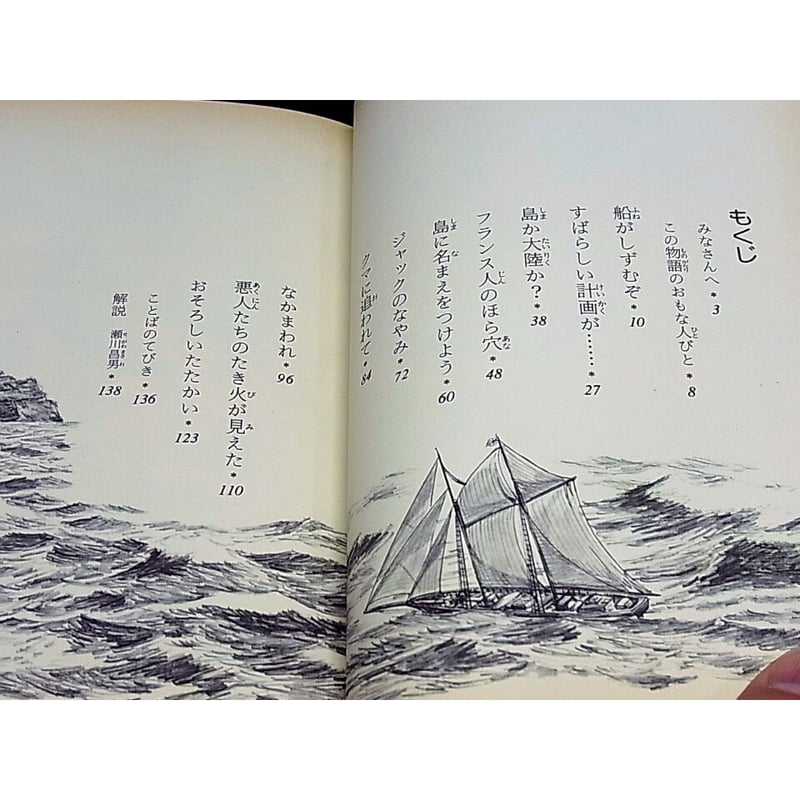 もくじ
みなさんへ * 3
この物語のおもな人びと * 8
船がしずむぞ * 10
すばらしい計画が…… * 27
島か大陸か? * 38
フランス人のほら穴 * 48
島に名まえをつけよう * 60
ジャックのなやみ * 72
クマに追われて * 84
なかまわれ * 96
悪人たちのたき火が見えた * 110
おそろしいたたかい * 123
ことばのてびき * 136
解説 瀬川昌男 * 138